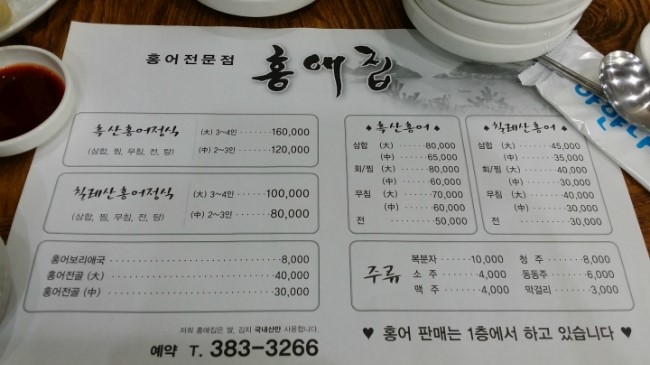 홍어전문점 홍애집
흑산홍어정식 (大) 3~4인 ········ 160,000
(삼합, 찜, 무침, 전, 탕) (中) 2~3인 ········ 120,000
칠레산홍어정식 (大) 3~4인 ········ 100,000
(삼합, 찜, 무침, 전, 탕) (中) 2~3인 ········ 80,000
홍어보리애국 ········ 8,000
홍어전골 (大) ········ 40,000
홍어전골 (中) ········ 30,000
◆ 흑산홍어 ◆
삼합 (大) ········ 80,000
(中) ········ 65,000
회/찜 (大) ········ 80,000
(中) ········ 60,000
무침 (大) ········ 70,000
(中) ········ 60,000
전 ········ 50,000
◆ 칠레산홍어 ◆
삼합 (大) ········ 45,000
(中) ········ 35,000
회/찜 (大) ········ 40,000
(中) ········ 30,000
무침 (大) ········ 40,000
(中) ········ 30,000
전 ········ 30,000
주류
복분자 ········ 10,000 청 주 ········ 8,000
소 주 ········ 4,000 동동주 ········ 6,000
맥 주 ········ 4,000 막걸리 ········ 3,000
저희 홍애집은 쌀, 김치 국내산만 사용합니다.
예약 T. 383-3266
♥ 홍어 판매는 1층에서 하고 있습니다 ♥